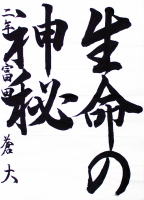 生命の
神秘
二年 富田 蒼大